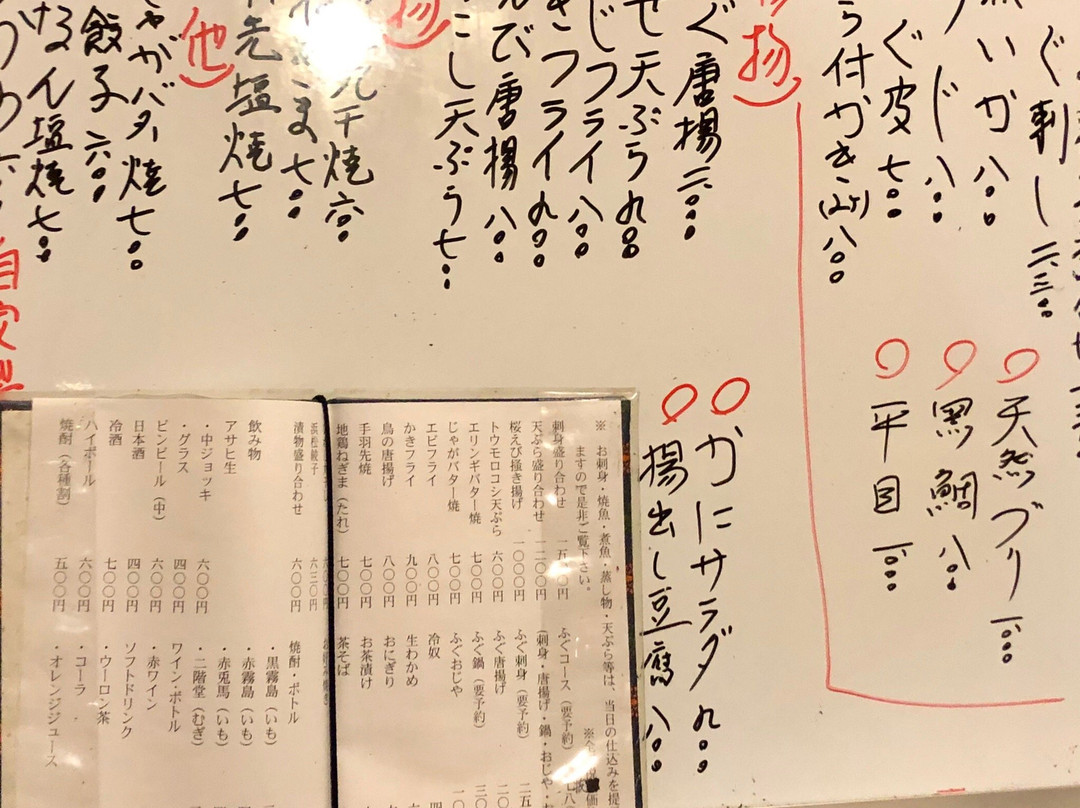 ぐ刺し 二、三〇〇
いか 八〇〇
じ 八〇〇
ぐ皮 七〇〇
ら付かき(2ヶ) 八〇〇
〇天然ブリ 一、〇〇〇
〇黒鯛 八〇〇
〇平目 一、〇〇〇
物)
ぐ唐揚 二、〇〇〇
せ天ぷら 九〇〇
じフライ 八〇〇
きフライ 九〇〇
んび唐揚 八〇〇
こし天ぷら 七〇〇
物)
干焼 六〇〇
ま 七〇〇
先塩焼 七〇〇
他)
ゃがバター焼 七〇〇
餃子 六〇〇
けるん塩焼 七〇〇
自家
〇かにサラダ 九〇〇
〇揚出し豆腐 八〇〇
※ お刺身・焼魚・煮魚・蒸し物・天ぷら等は、当日の仕込みを提
ますので是非ご覧下さい。
刺身盛り合わせ
天ぷら盛り合わせ 一二〇〇円
桜えび掻き揚げ 一〇〇〇円
トウモロコシ天ぷら 六〇〇円
エリンギバター焼 七〇〇円
じゃがバター焼 七〇〇円
エビフライ 八〇〇円
かきフライ 九〇〇円
鳥の唐揚げ 八〇〇円
手羽先焼 七〇〇円
地鶏ねぎま(たれ) 七〇〇円
ふぐコース(要予約)
(刺身・唐揚げ・鍋・おじや・
ふぐ刺身(要予約)
ふぐ唐揚げ
ふぐ鍋(要予約)
ふぐおじや
冷奴
生わかめ
おにぎり
お茶漬け
茶そば
浜松餃子 六三〇円
漬物盛り合わせ 六〇〇円
飲み物
アサヒ生
・中ジョッキ 六〇〇円
・グラス 四〇〇円
ビンビール(中) 六〇〇円
日本酒 四〇〇円
冷酒 七〇〇円
ハイボール 六〇〇円
焼酎(各種割) 五〇〇円
焼酎・ボトル
・黒霧島(いも)
・赤霧島(いも)
・赤兎馬(いも)
・二階堂(むぎ)
ワイン・ボトル
・赤ワイン
ソフトドリンク
・ウーロン茶
・コーラ
・オレンジジュース